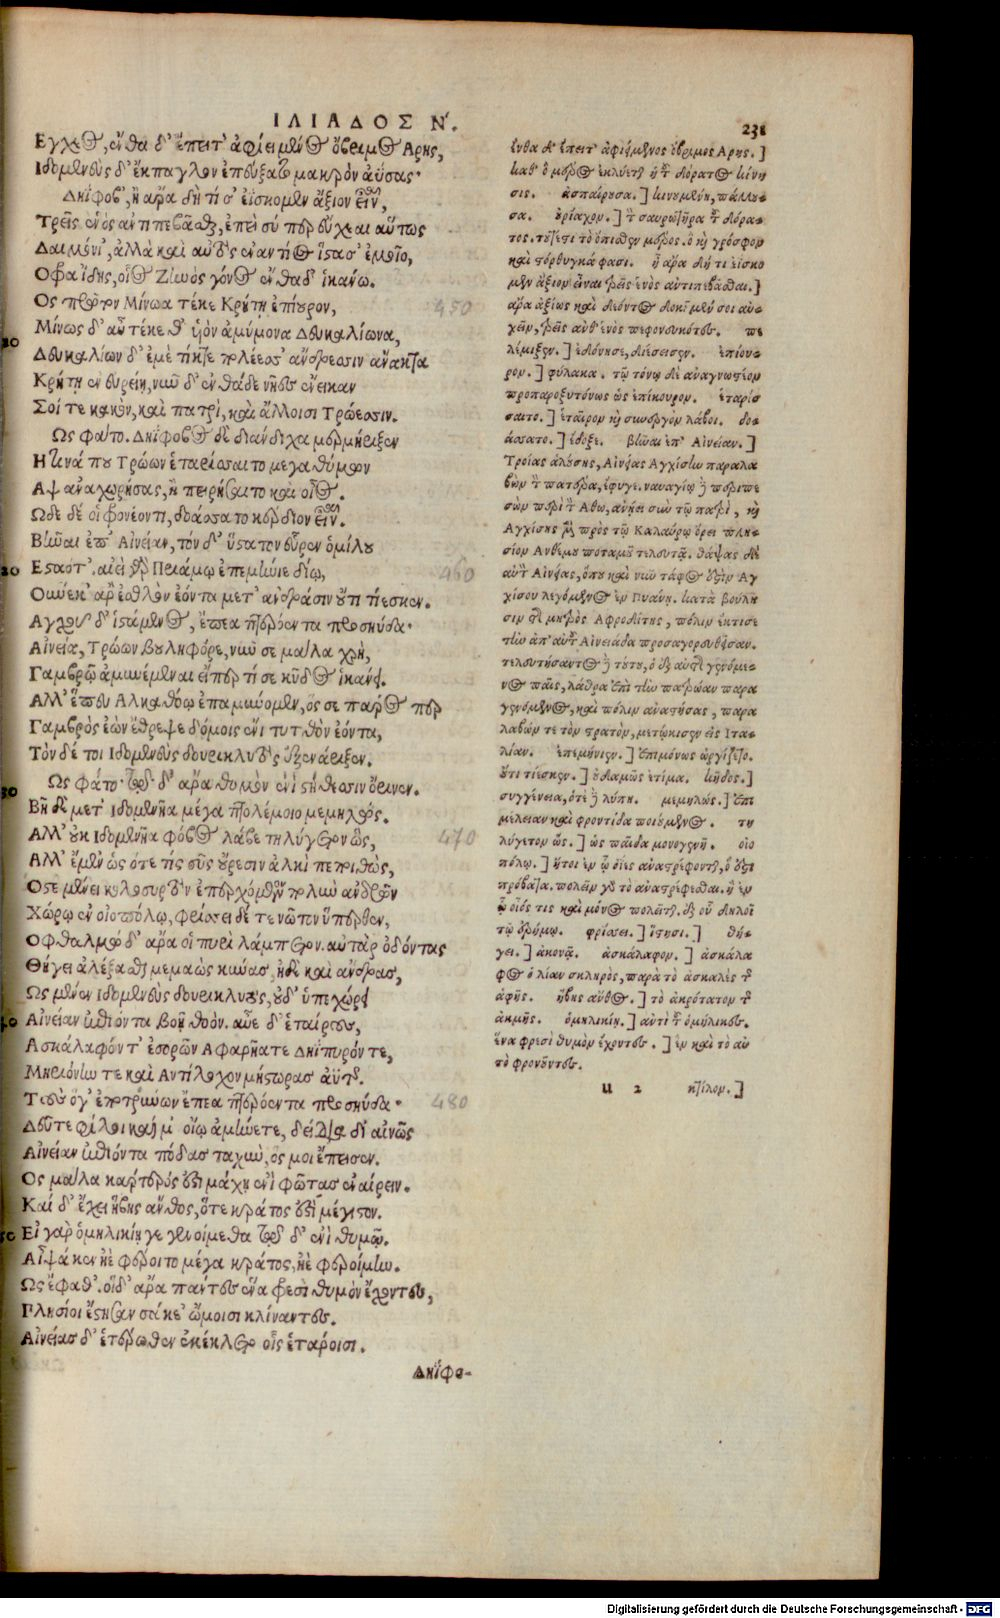 ΙΛΙΑΔΟΣ Ν.
231
Εγχεος, ἔνθα δ' ἔπειτ' ἀφίει μένος ὄβριμος Αρης,
Ιδομενεὺς δ' ἔκπαγλον ἐπεύξατο μακρὸν ἀΰσας·
Δηΐφοβ', ἦ ἄρα δή τί σ' ἐΐσκομεν ἄξιον εἶναι,
Τρεῖς ἑνὸς ἀντὶ πεφᾶσθαι, ἐπεὶ σύ περ εὔχεαι αὕτως
Δαιμόνι', ἀλλὰ καὶ αὐτὸς ἐναντίος ἵστασ' ἐμεῖο,
Οφρα ἴδῃς, οἷος Ζηνὸς γόνος ἐνθάδ' ἱκάνω.
Ος πρῶτον Μίνωα τέκε Κρήτῃ ἐπίουρον,
450
Μίνως δ' αὖ τέκεθ' υἱὸν ἀμύμονα Δευκαλίωνα,
Δευκαλίων δ' ἐμὲ τίκτε πολέεσσ' ἄνδρεσσιν ἄνακτα
Κρήτῃ ἐν εὐρείῃ, νῦν δ' ἐνθάδε νῆες ἔνεικαν
Σοί τε κακὸν, καὶ πατρὶ, καὶ ἄλλοισι Τρώεσσιν.
Ως φάτο. Δηΐφοβος δὲ διάνδιχα μερμήριξεν
Η τινά που Τρώων ἑταρίσσαιτο μεγαθύμων
Αψ ἀναχωρήσας, ἢ πειρήσαιτο καὶ οἶος.
Ωδε δέ οἱ φρονέοντι, δοάσσατο κέρδιον εἶναι.
Βῆναι ἐπ' Αἰνείαν, τὸν δ' ὕστατον εὗρεν ὁμίλου
20 Εσταότ'. αἰεὶ γὰρ Πριάμῳ ἐπεμήνιε δίῳ,
460
Οὕνεκ' ἄρ' ἐσθλὸν ἐόντα μετ' ἀνδράσιν οὔτι τίεσκεν.
Αγχοῦ δ' ἱστάμενος, ἔπεα πτερόεντα προσηύδα·
Αἰνεία, Τρώων βουληφόρε, νῦν σε μάλα χρὴ,
Γαμβρῷ ἀμυνέμεναι εἴπερ τί σε κῆδος ἱκάνει.
Αλλ' ἕπευ Αλκαθόῳ ἐπαμύνομεν, ὅς σε πάρος περ
Γαμβρὸς ἐὼν ἔθρεψε δόμοις ἔνι τυτθὸν ἐόντα,
Τὸν δέ τοι Ιδομενεὺς δουρικλυτὸς ἐξενάριξεν.
Ως φάτο· τῷ δ' ἄρα θυμὸν ἐνὶ στήθεσσιν ὄρινεν.
30 Βῆ δὲ μετ' Ιδομενῆα μέγα πτολέμοιο μεμηλώς.
Αλλ' οὐκ Ιδομενῆα φόβος λάβε τηλύγετον ὣς,
470
Αλλ' ἔμεν' ὡς ὅτε τίς σῦς οὔρεσιν ἀλκὶ πεποιθὼς,
Οστε μένει κολοσυρτὸν ἐπερχόμενον πολὺν ἀνδρῶν
Χώρῳ ἐν οἰοπόλῳ, φρίσσει δέ τε νῶτον ὕπερθεν,
Οφθαλμὼ δ' ἄρα οἱ πυρὶ λάμπετον. αὐτὰρ ὀδόντας
Θήγει ἀλέξασθαι μεμαὼς κύνας ἠδὲ καὶ ἄνδρας,
Ως μένεν Ιδομενεὺς δουρικλυτὸς, οὐδ' ὑπεχώρει
Αἰνείαν ἐπιόντα βοὴ θοόν. αὖε δ' ἑταίρους,
Ασκάλαφόν τ' ἐσορῶν Αφαρῆάτε Δηΐπυρόν τε,
Μηριόνην τε καὶ Αντίλοχον μήστωρας ἀϋτῆς.
Τοὺς ὅγ' ἐποτρύνων ἔπεα πτερόεντα προσηύδα·
480
Δεῦτε φίλοι καί μ' οἴῳ ἀμύνετε, δείδια δ' αἰνῶς
Αἰνείαν ἐπιόντα πόδας ταχὺν, ὅς μοι ἔπεισιν.
Ος μάλα καρτερὸς ἐστὶ μάχῃ ἐνὶ φῶτας ἐναίρειν.
Καὶ δ' ἔχει ἥβης ἄνθος, ὅτε κράτος ἐστὶ μέγιστον.
Εἰ γὰρ ὁμηλικίη γε γενοίμεθα τῷδ' ἐνὶ θυμῷ.
Αἶψά κεν ἠὲ φέροιτο μέγα κράτος, ἠὲ φεροίμην.
Ως ἔφαθ'. οἱ δ' ἄρα πάντες ἕνα φρεσὶ θυμὸν ἔχοντες,
Πλησίοι ἔστησαν σάκε' ὤμοισι κλίναντες.
Αἰνείας δ' ἑτέρωθεν ἐκέκλετο οἷς ἑτάροισι.
Δηΐφο-
ἔνθα δ' ἔπειτ' ἀφιέμενος ὄβριμος Αρης.]
καθ' ὃ μέρος ἐκλύετο ἡ τοῦ δόρατος κίνη
σις. ἀσπαίρουσα.] κινουμένη, πάλλου-
σα. οὐρίαχον.] τὸν σαυρωτῆρα τοῦ δόρα-
τος. τουτέστι τὸ ὄπισθεν μέρος. ὃ καὶ γρόσφον
καὶ στόρθυγκά φασι. ἦ ἄρα δή τι ἐΐσκο
μεν ἄξιον εἶναι τρεῖς ἑνὸς ἀντιπεφᾶσθαι.]
ἄρα ἀξίως καὶ δεόντως δοκοῦμέν σοι αὐ-
χεῖν, τρεῖς ἀνθ' ἑνὸς πεφονευκότες. πε
λέμιξεν.] ἐδόνησε, διέσεισεν. ἐπίου-
ρον.] φύλακα. τῷ τόνῳ δὲ ἀναγνωστέον
προπαροξυτόνως ὡς ἐπίκουρον. ἑταρίσ
σαιτο.] ἑταῖρον καὶ συνεργὸν λάβοι. δοά-
άσσατο.] ἔδοξε. βῆναι ἐπ' Αἰνείαν.]
Τροίας ἁλούσης, Αἰνείας Αγχίσην παραλα
βὼν τὸν πατέρα, ἔφυγε. ναυαγίῳ δὲ περιπε
σὼν περὶ τὸν Αθω, ἀνῄει σὺν τῷ πατρὶ, καὶ
Αγχίσης μὲν πρὸς τῷ Καλαύρῳ ὄρει πλη-
σίον Ανθέμου ποταμοῦ τελευτᾷ. θάψας δὲ
αὐτὸν Αἰνείας, ὅπου καὶ νῦν τάφος ἐστὶν Αγ
χίσου λεγόμενος ἐν Πυάνῃ. κατὰ βούλη
σιν τῆς μητρὸς Αφροδίτης, πόλιν ἔκτισε
τὴν ἀπ' αὐτοῦ Αἰνειάδα προσαγορευθεῖσαν.
τελευτήσαντος δὲ τούτου, ὁ ἐξ αὐτοῦ γενόμε-
νος παῖς, λάθρα ἐπὶ τὴν πατρῴαν παρα
γενόμενος, καὶ πόλιν ἀναστήσας, παρα
λαβών τε τὸν στρατὸν, μετῴκισεν εἰς Ιτα-
λίαν. ἐπεμήνιεν.] ἐπιμόνως ὠργίζετο.
οὔτι τίεσκεν.] οὐδαμῶς ἐτίμα. κῆδος.]
συγγένεια, ὁτὲ δὲ λύπη. μεμηλώς.] ἐπι
μέλειαν καὶ φροντίδα ποιούμενος. τη
λύγετον ὥς.] ὡς παῖδα μονογενῆ. οἰο
πόλῳ.] ἤτοι ἐν ᾧ ὄϊες ἀναστρέφονται, ὅ ἐστι
πρόβατα. πολεῖν γὰρ τὸ ἀναστρέφεσθαι. ἢ ἐν
ᾧ οἶός τις καὶ μόνος πολεῖται. ἐξ οὗ δηλοῖ
τῷ ἐρήμῳ. φρίσσει.] ἵστησι.] θή-
γει.] ἀκονᾷ. ἀσκάλαφον.] ἀσκάλα
φος ὁ λίαν σκληρὸς, παρὰ τὸ ἀσκαλὲς τῆς
ἁφῆς. ἥβης ἄνθος.] τὸ ἀκρότατον τῆς
ἀκμῆς. ὁμηλικίη.] ἀντὶ τοῦ ὁμήλικες.
ἕνα φρεσὶ θυμὸν ἔχοντες.] ἓν καὶ τὸ αὐ
τὸ φρονοῦντες.
u 2 κτίλον.]
Digitalisierung gefördert durch die Deutsche Forschungsgemeinschaft - DFG